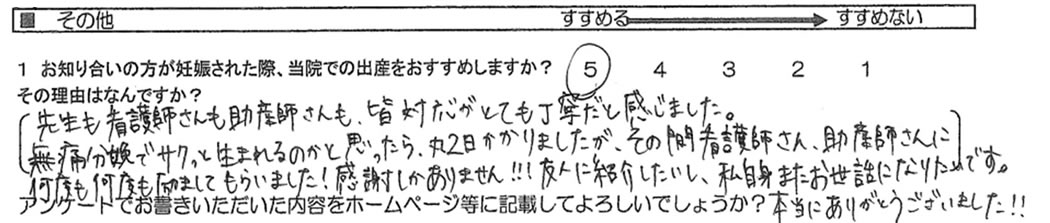 ■ その他 すすめる → すすめない
1 お知り合いの方が妊娠された際、当院での出産をおすすめしますか? 5 4 3 2 1
その理由はなんですか?
先生も看護師さんも助産師さんも、皆対応がとても丁寧だと感じました。
無痛分娩でサクっと生まれるのかと思ったら、丸2日かかりましたが、その間看護師さん、助産師さんに
何度も何度も励ましてもらいました!感謝しかありません!!!友人に紹介したいし、私自身またお世話になりたいです。
アンケートでお書きいただいた内容をホームページ等に記載してよろしいでしょうか?本当にありがとうございました!!